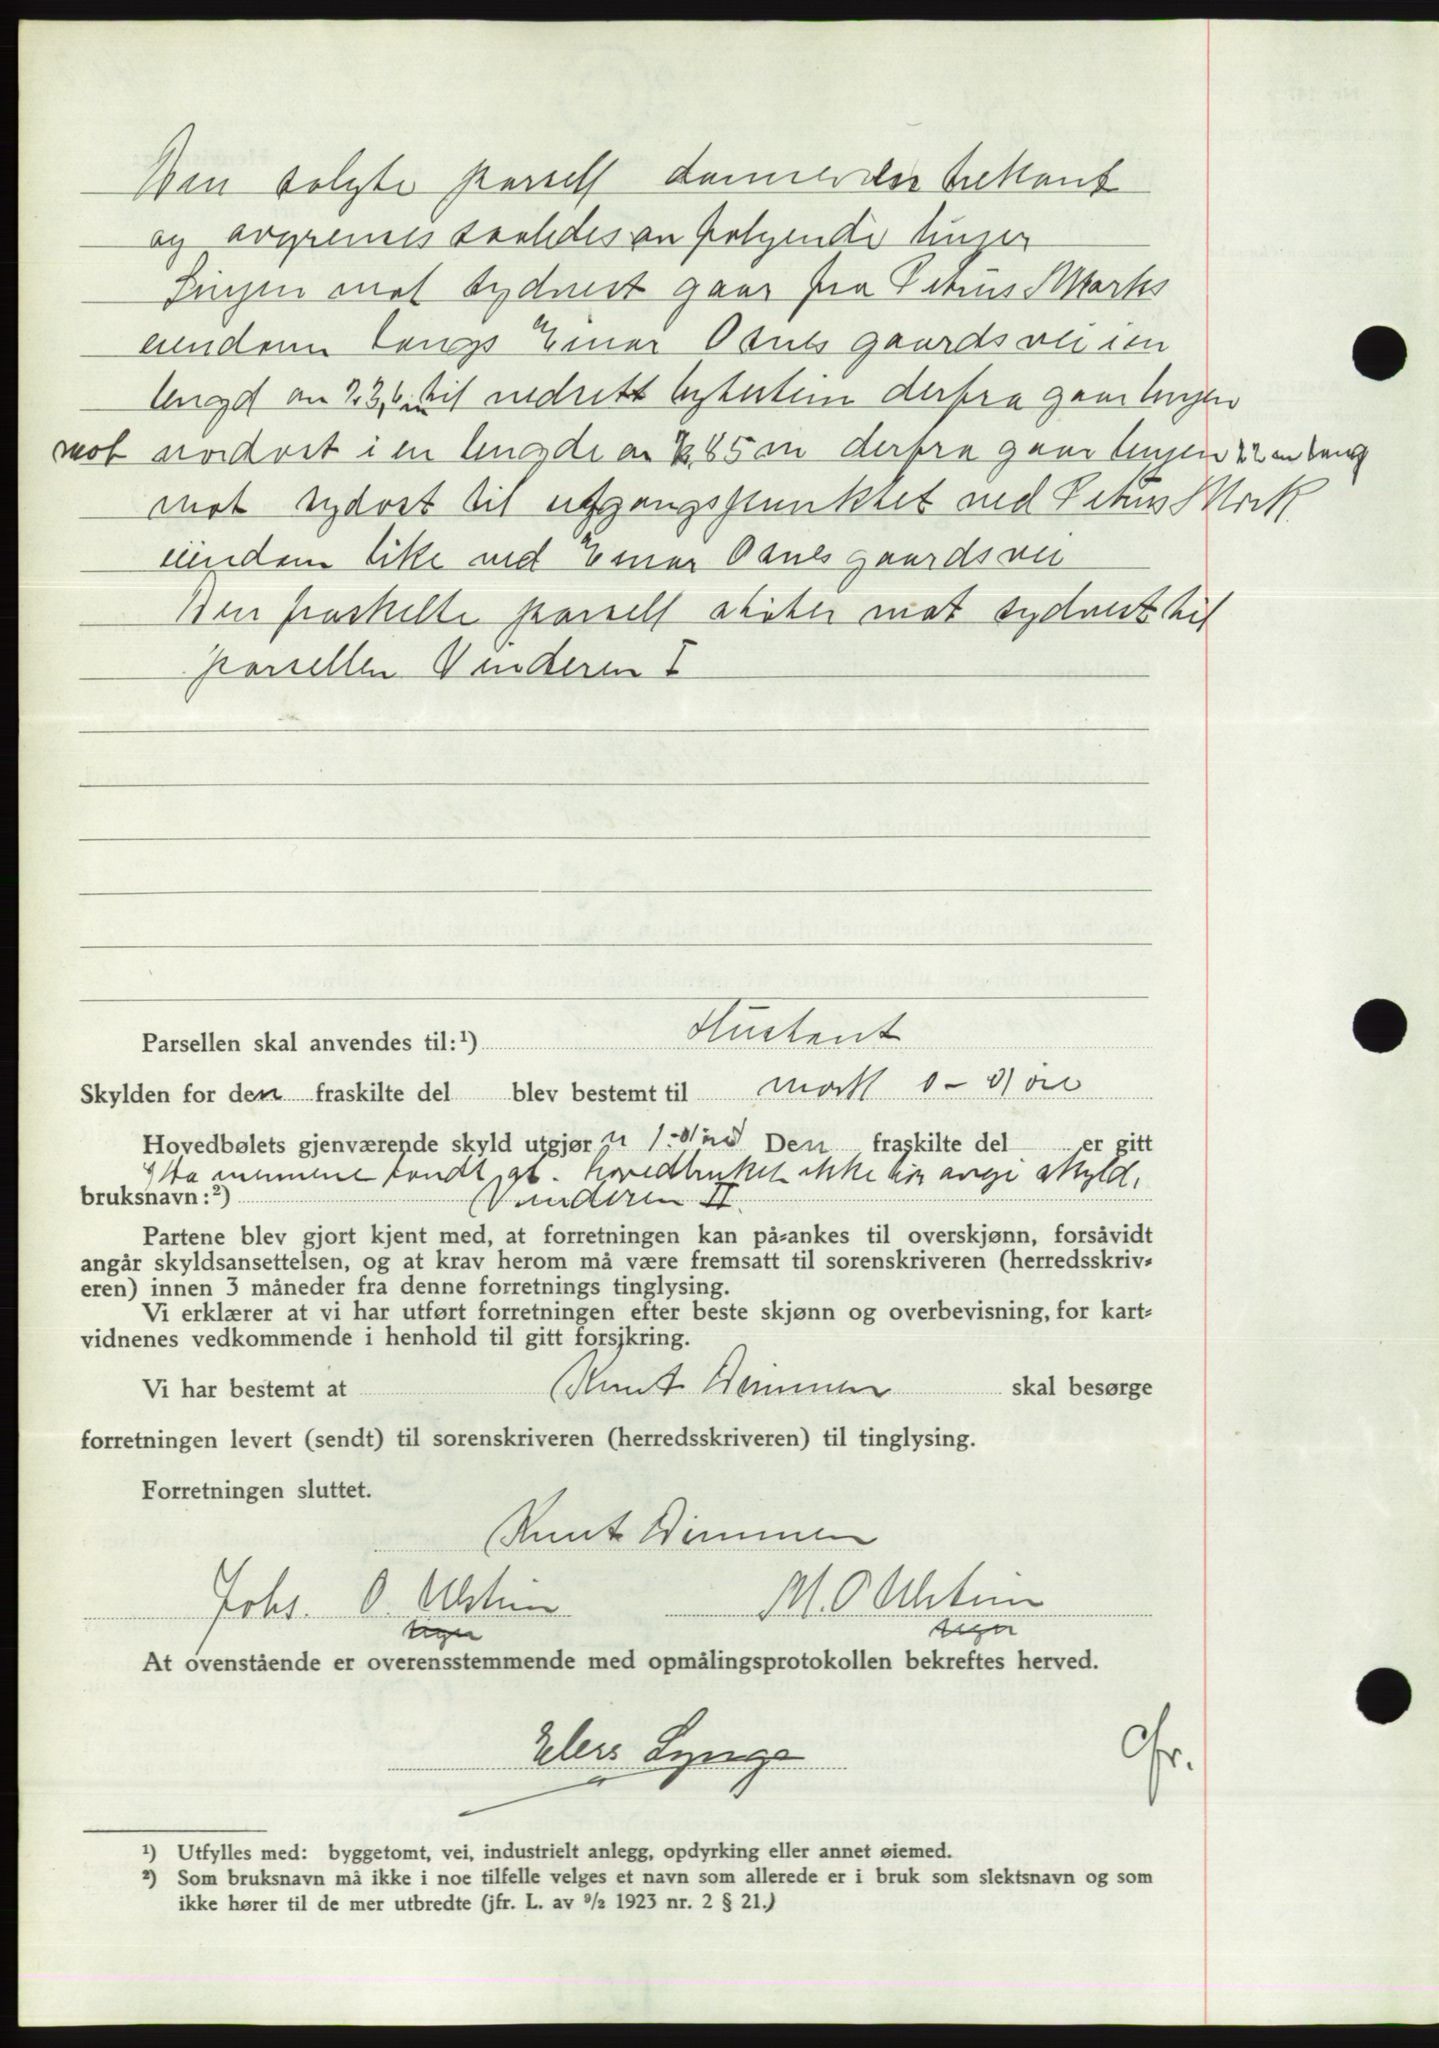 Den solgte parsell danner en trekant
og avgrenses saaledes av følgende linjer
Linjen mot sydvest gaar fra Petrus Mørks
eiendom langs Einar Osnes gaardsvei i en
lengd av 23,6 m til nedsett bytestein derfra gaar linjen
mot nordost i en lengde av 85 m derfra gaar linjen 22 m lang
mot sydost til utgangspunktet ved Petrus Mørk
eiendom like ved Einar Osnes gaardsvei
Den fraskelte parsell støter mot sydvest til
parsellen Vinderen I
Parsellen skal anvendes til:¹) Hustomt
Skylden for den fraskilte del blev bestemt til mark 0-01 øre
Hovedbølets gjenværende skyld utgjør Den fraskilte del er gitt
mennene fandt at hovedbruket ikke bør avgi skyld.
bruksnavn:²) Vinderen II.
Partene blev gjort kjent med, at forretningen kan på-ankes til overskjønn, forsåvidt
angår skyldsansettelsen, og at krav herom må være fremsatt til sorenskriveren (herredsskriv-
eren) innen 3 måneder fra denne forretnings tinglysing.
Vi erklærer at vi har utført forretningen efter beste skjønn og overbevisning, for kart-
vidnenes vedkommende i henhold til gitt forsikring.
Vi har bestemt at Knut Dimmen skal besørge
forretningen levert (sendt) til sorenskriveren (herredsskriveren) til tinglysing.
Forretningen sluttet.
Knut Dimmen
Johs. O. Ulstein M. O Ulstein
At ovenstående er overensstemmende med opmålingsprotokollen bekreftes herved.
Elers Lynge
Cfr.
¹) Utfylles med: byggetomt, vei, industrielt anlegg, opdyrking eller annet øiemed.
²) Som bruksnavn må ikke i noe tilfelle velges et navn som allerede er i bruk som slektsnavn og som
ikke hører til de mer utbredte (jfr. L. av ⁹/₂ 1923 nr. 2 § 21.)